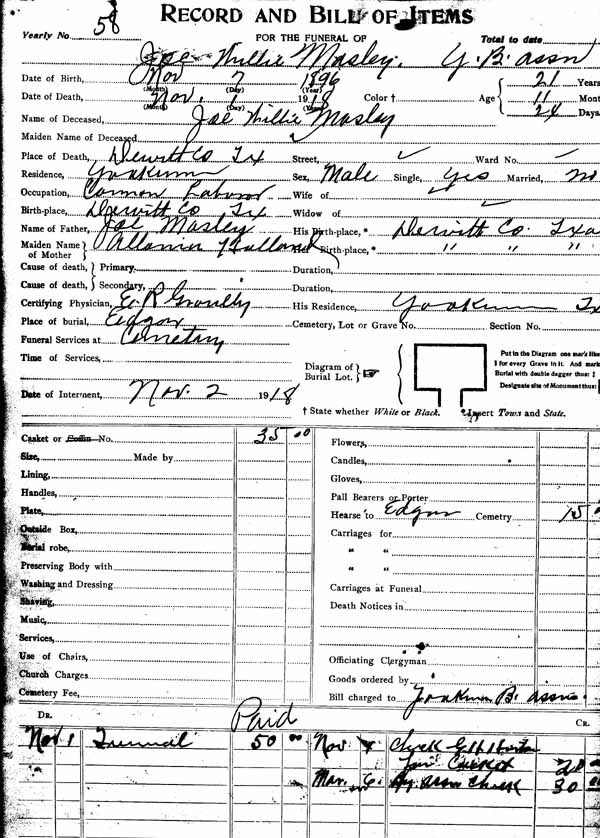 58
RECORD AND BILL OF ITEMS
Yearly No. FOR THE FUNERAL OF Total to date
Joe Willie Mosley. Y. B. assn
Date of Birth, Nov 7 1896 21 Years
(Month) (Day) (Year)
Date of Death, Nov. 1918 Color † Age 11 Months
(Month) (Day) (Year)
24 Days
Name of Deceased, Joe Willie Mosley
Maiden Name of Deceased,
Place of Death, Dewitt Co Tx Street, ✓ Ward No.
Residence, Yoakum Sex, Male Single, Yes Married, no
Occupation, Common Laborer Wife of
Birth-place, Dewitt Co Tx Widow of
Name of Father, Joe Mosley His Birth-place,* Dewitt Co. Txa
Maiden Name of Mother Holland Her Birth-place,* " " "
Cause of death, Primary, Duration,
Cause of death, Secondary, Duration,
Certifying Physician, His Residence, Yoakum Tx
Place of burial, Edgar Cemetery, Lot or Grave No. Section No.
Funeral Services at Cemetary
Time of Services,
Diagram of Burial Lot. ☞
Put in the Diagram one mark like
for every Grave in it. And mark
Burial with double dagger thus: ‡
Designate site of Monument thus:
Date of Interment, Nov. 2 1918
† State whether White or Black. *Insert Town and State.
Casket or Coffin No. 35 00 Flowers,
Size, Made by Candles,
Lining, Gloves,
Handles, Pall Bearers or Porter
Plate, Hearse to Edgar Cemetry 15
Outside Box, Carriages for
Burial robe, " "
Preserving Body with " "
Washing and Dressing Carriages at Funeral
Shaving, Death Notices in
Music,
Services,
Use of Chairs, Officiating Clergyman
Church Charges Goods ordered by
Cemetery Fee, Bill charged to Yoakum B. assns.
DR. Paid CR.
Nov. 1 Funeral 50 00 Nov Check
20
Mar. 6. By assn check 30 00